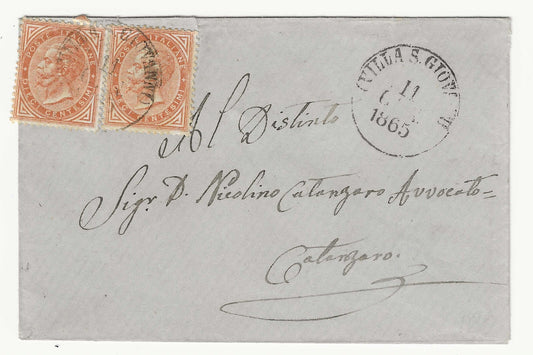 POSTE ITALIANE POSTE ITALIANE
DIECI CENTESIMI DIECI CENTESIMI
VILLA S. GIOV
11
1865
Al Distinto
Sigr. D. Nicolino Catanzaro Avvocato=
Catanzaro.